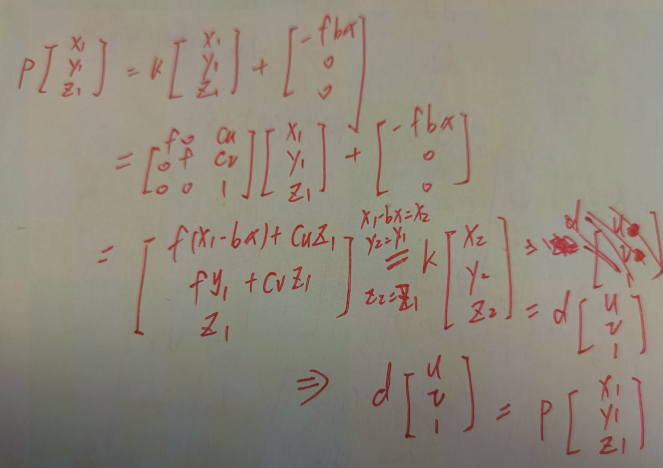 P [x₁ y₁ z₁] = K [x₁ y₁ z₁] + [-fbx 0 0]
= [f 0 Cu 0 f Cv 0 0 1] [x₁ y₁ z₁] + [-fbx 0 0]
= [f(x₁-bx)+Cuz₁ fy₁+Cvz₁ z₁] x₁-bx=x₂ y₂=y₁ z₂=z₁ = K [x₂ y₂ z₂] ⇒
= d [u v 1]
⇒ d [u v 1] = P [x₁ y₁ z₁]